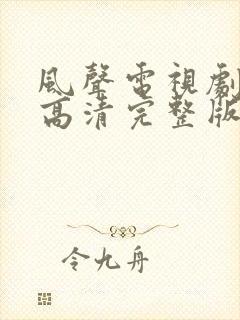 風聲電視劇
高清完整版
令九舟